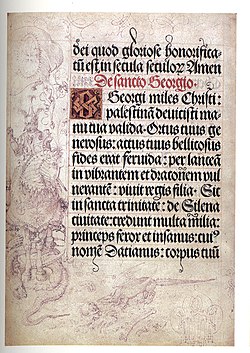 dei quod gloriose honorifica-
tū est in secula seculoȝ Amen
De sancto Georgio.
Georgi miles Christi:
palestinā deuicisti ma-
nu tua valida. Ortus tuus ge
nerosus: actus tuus bellicosus
fides erat feruida: per lanceā
in vibrantem et draconem vul
nerantē: viuit regis filia. Sit
in sancta trinitate: de Silena
ciuitate: credunt multa milia:
princeps ferox et insanus: cui⁹
nomē Datianus: corpus tuū